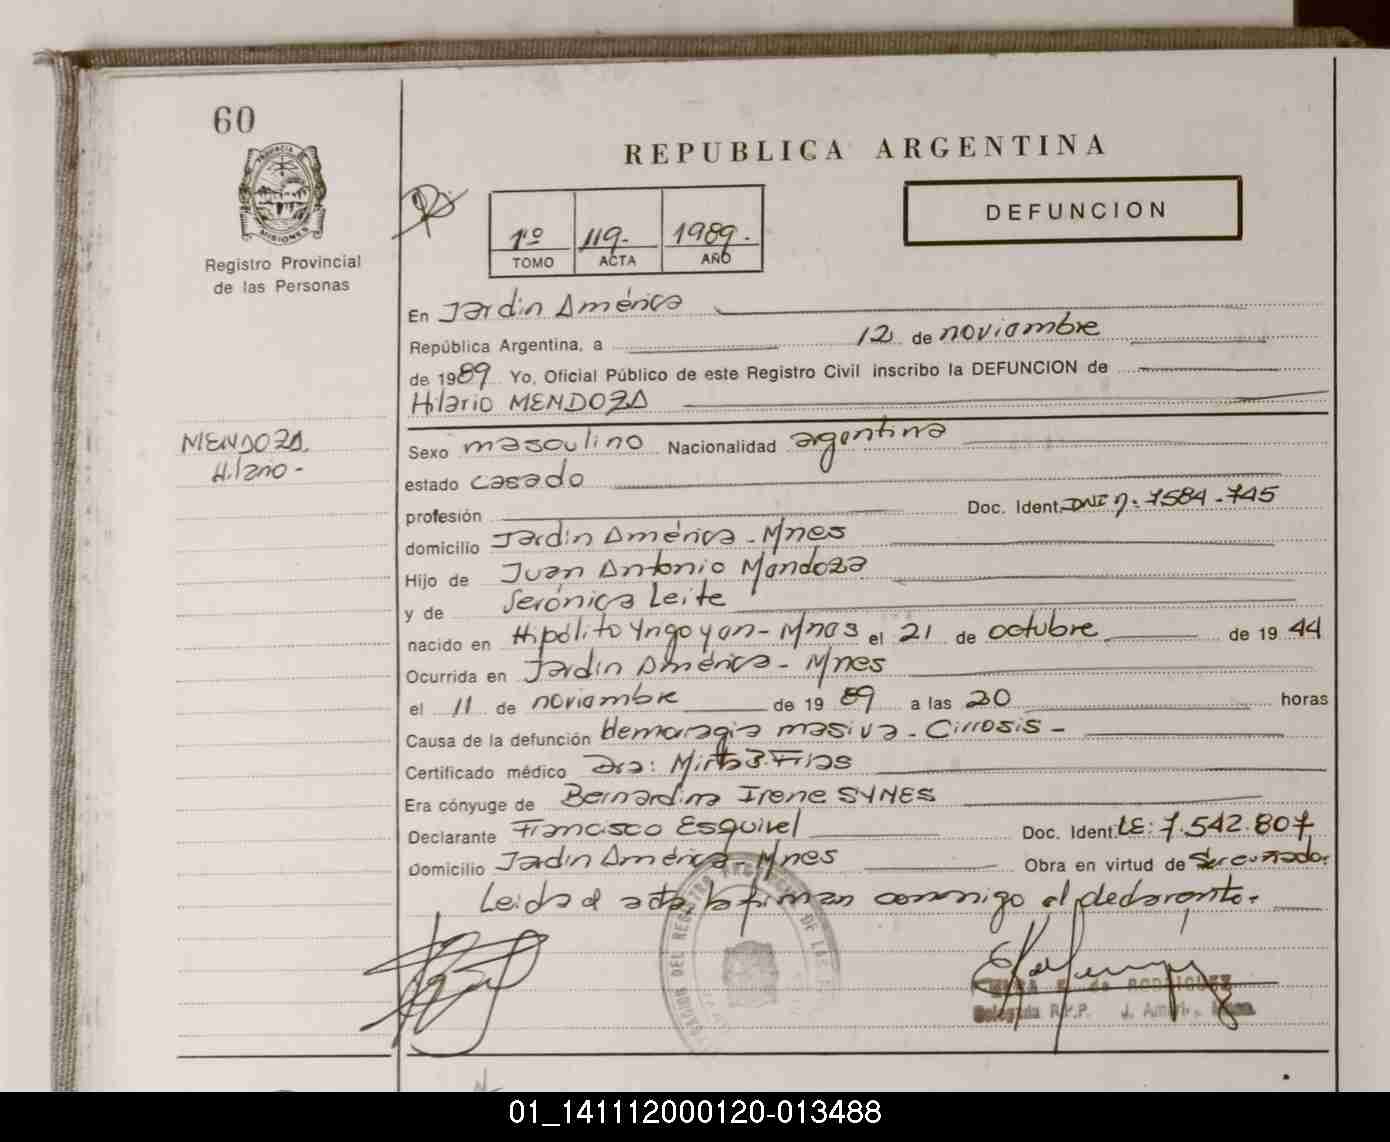 60
PROVINCIA DE
MISIONES
Registro Provincial
de las Personas
REPUBLICA ARGENTINA
1º 119- 1989.
TOMO ACTA AÑO
DEFUNCION
En Jardin América
República Argentina, a 12 de noviembre
de 1989 Yo, Oficial Público de este Registro Civil inscribo la DEFUNCION de
Hilario MENDOZA
MENDOZA.
Hilario -
Sexo masculino Nacionalidad argentina
estado casado
profesión Doc. Ident. DNI n: 7584-745
domicilio Jardin América - Mnes
Hijo de Juan Antonio Mendoza
y de Serónica Leite
nacido en Hipólito Yrigoyen - Mnes el 21 de octubre de 1944
Ocurrida en Jardin América - Mnes
el 11 de noviembre de 1989 a las 20 horas
Causa de la defunción Hemoragia masiva - Cirrosis -
Certificado médico Dra: Mirta B. Frias
Era cónyuge de Bernardina Irene SYNES
Declarante Francisco Esquivel Doc. Ident. LE: 7.542.807
Domicilio Jardin América - Mnes Obra en virtud de
Leida el acta la firman conmigo el declarante.
DEL REGISTRO DE LAS
de RODRIGUEZ
Delegada R.P.P.
01_141112000120-013488